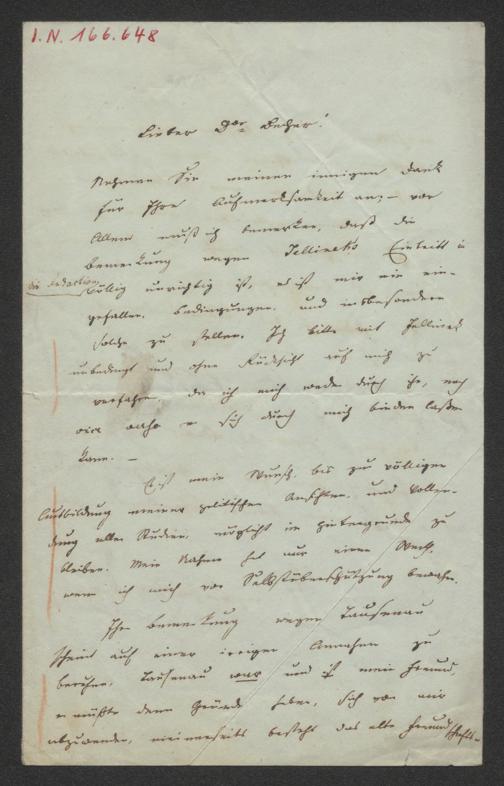 I. N. 166.648
Lieber Dor Becher!
Nehmen Sie meinen innigen Dank
für Ihre Aufmerksamkeit an; – vor
Allem muß ich bemerken, daß die
Bemerkung wegen Jellineks Eintritt in
die Redaction
völlig unrichtig ist, es ist mir nie ein-
gefallen, Bedingungen, und insbesondere
solche zu stellen. Ich bitte mit Jellinek
unbedingt und ohne Rücksicht auf mich zu
verfahren, da ich mich weder durch ihn, noch
er sich durch mich binden laßen
kann. –
Es ist mein Wunsch, bis zur völligen
Ausbildung meiner politischen Ansichten, und Vollen-
dung aller Studien, möglichst im Hintergrunde zu
bleiben. Mein Nahme hat nur einen Werth,
wenn ich mich vor Selbstüberschätzung bewahre.
Ihre Bemerkung wegen Tausenau
scheint auf einer irrigen Annahme zu
beruhen. Tausenau war und ist mein Freund,
er müßte denn Gründe haben, sich von mir
abzuwenden, meinerseits besteht das alte Freundschafts-